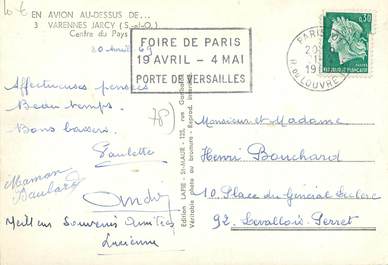 EN AVION AU-DESSUS DE...
3 VARENNES JARCY (S.-&-O.)
Centre du Pays
30 Avril 69
FOIRE DE PARIS
19 AVRIL - 4 MAI
PORTE DE VERSAILLES
PARIS
R. DU LOUVRE
0,30
REPUBLIQUE FRANCAISE
Affectueuses pensées
Beau temps.
Bons baisers.
Paulette
Maman
André
Meilleurs Souvenirs Amitiés
Lucienne
78
Edition LAPIE - St-MAUR - 125, rue Garibaldi
Véritable photo au bromure - Reprod. interdite
Monsieur et Madame
Henri Bouchard
10 Place du Général Leclerc
92. Levallois-Perret